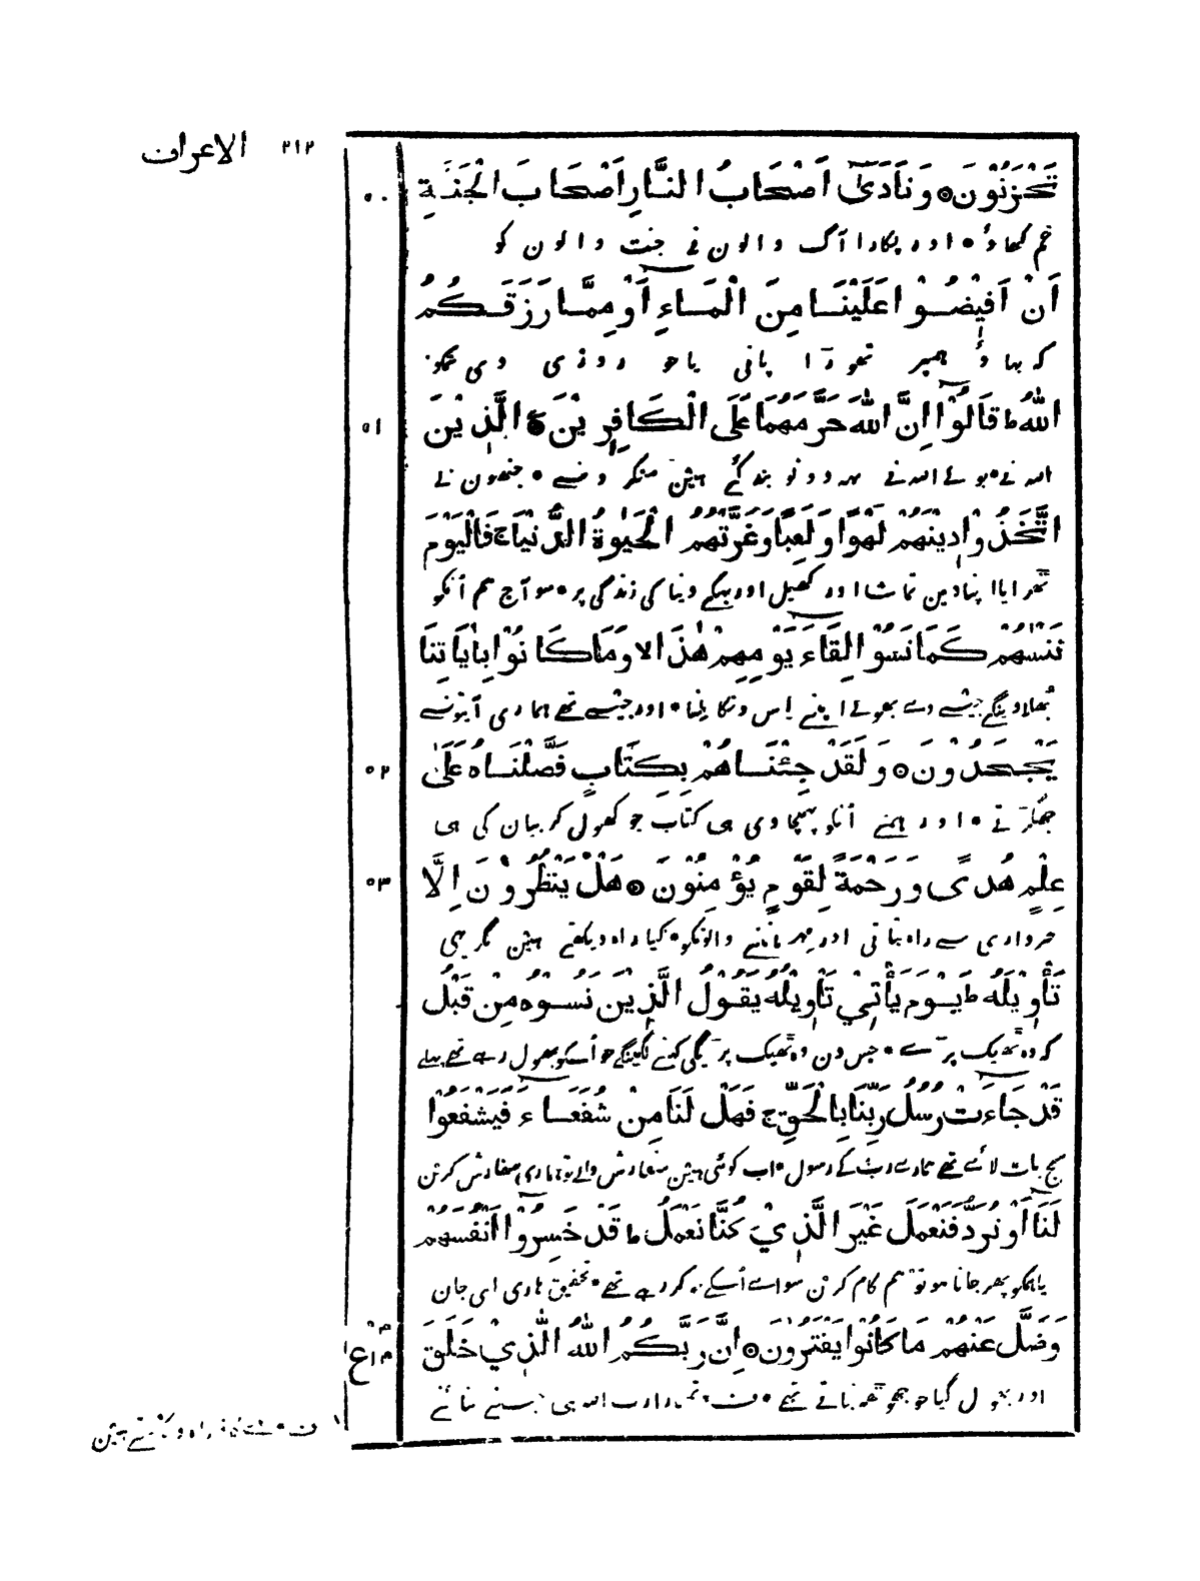 الاعراف ۲۱۲
تَحْزَنُوْنَ ۝ وَنَادَىٰٓ اَصْحَابُ النَّارِ اَصْحَابَ الْجَنَّةِ
۵۰
غم کھاؤ • اور پکارا آگ والون نے جنت والون کو
اَنْ اَفِيْضُوْا عَلَيْنَا مِنَ الْمَآءِ اَوْ مِمَّا رَزَقَكُمُ
کہ بہاؤ ہمپر تھوڑا پانی یا جو روزی دی تمکو
اللّٰهُ ط قَالُوْٓا اِنَّ اللّٰهَ حَرَّمَهُمَا عَلَى الْكَافِرِيْنَ ۝ الَّذِيْنَ
۵۱
اللہ نے • بولے اللہ نے یہہ دونو بند کئے ہین منکرونسے • جنھون نے
اتَّخَذُوْا دِيْنَهُمْ لَهْوًا وَلَعِبًا وَغَرَّتْهُمُ الْحَيٰوةُ الدُّنْيَا ج فَالْيَوْمَ
ٹھرایا اپنا دین تماشا اور کھیل اور بہکے دنیا کی زندگی پر • سو آج ہم اُنکو
نَنْسٰهُمْ كَمَا نَسُوْا لِقَآءَ يَوْمِهِمْ هٰذَا لا وَمَا كَانُوْا بِاٰيَاتِنَا
بُھلاوینگے جیسے وے بھولے اپنے اِس دنکا ملنا • اور جیسے تھے ہماری آیتونسے
يَجْحَدُوْنَ ۝ وَلَقَدْ جِئْنَاهُمْ بِكِتَابٍ فَصَّلْنَاهُ عَلَىٰ
۵۲
جھگڑتے • اور ہمنے اُنکو پہنچا دی ہی کتاب جو کھول کر بیان کی ہی
عِلْمٍ هُدًى وَرَحْمَةً لِقَوْمٍ يُؤْمِنُوْنَ ۝ هَلْ يَنْظُرُوْنَ اِلَّا
۵۳
خبرداری سے راہ بتاتی اور مہر ماننے والونکو • کیا راہ دیکھتے ہین مگر یہی
تَأْوِيْلَهُ ط يَوْمَ يَأْتِيْ تَأْوِيْلُهُ يَقُوْلُ الَّذِيْنَ نَسُوْهُ مِنْ قَبْلُ
کہ وہ ٹھیک پڑے • جس دن وہ ٹھیک پڑیگی کہنے لگینگے جو اُسکو بھول رہے تھے پہلے
قَدْ جَآءَتْ رُسُلُ رَبِّنَا بِالْحَقِّ ج فَهَلْ لَنَا مِنْ شُفَعَآءَ فَيَشْفَعُوْا
سچ بات لائے تھے ہمارے رب کے رسول • اب کوئی ہین سفارش والے تو ہماری سفارش کرین
لَنَآ اَوْ نُرَدُّ فَنَعْمَلَ غَيْرَ الَّذِيْ كُنَّا نَعْمَلُ ط قَدْ خَسِرُوْٓا اَنْفُسَهُمْ
یا ہمکو پھر جانا ہو تو ہم کام کرین سوائے اُسکے جو کر رہے تھے • تحقیق ہاری اپنی جان
وَضَلَّ عَنْهُمْ مَا كَانُوْا يَفْتَرُوْنَ ۝ اِنَّ رَبَّكُمُ اللّٰهُ الَّذِيْ خَلَقَ
ع
اور بھول گیا جو جھوٹھ بناتے تھے • ف • تمہارا رب اللہ ہی جسنے بنائے
ف • راہ دیکھتے ہین